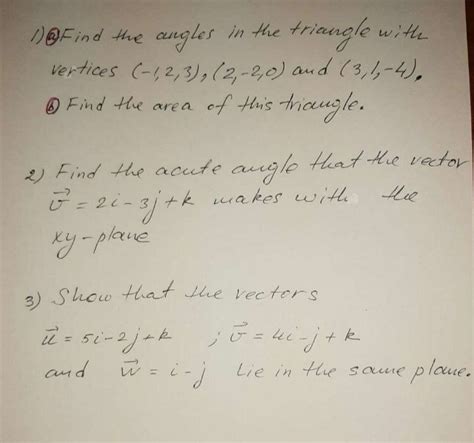 1) ⓐ Find the angles in the triangle with
vertices (-1,2,3), (2,-2,0) and (3,1,-4).
ⓑ Find the area of this triangle.
2) Find the acute angle that the vector
v⃗ = 2i - 3j + k makes with the
xy-plane
3) Show that the vectors
u⃗ = 5i - 2j + k ; v⃗ = 4i - j + k
and w⃗ = i - j lie in the same plane.